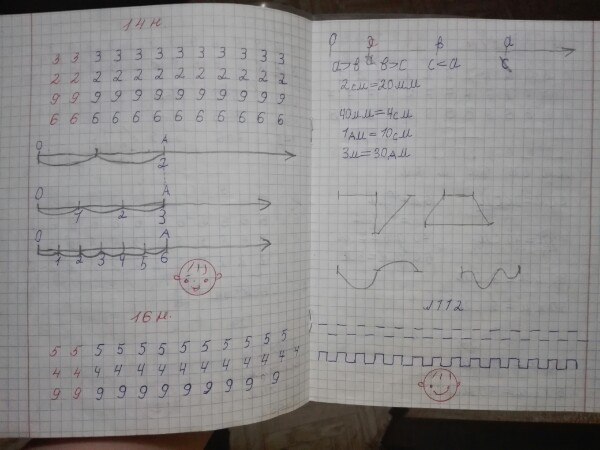 14 н
3 3 3 3 3 3 3 3 3 3 3 3
2 2 2 2 2 2 2 2 2 2 2 2
9 9 9 9 9 9 9 9 9 9 9 9
6 6 6 6 6 6 6 6 6 6 6 6
0 A
2
0 A
1 2 3
0 A
1 2 3 4 5 6
16 н.
5 5 5 5 5 5 5 5 5 5 5 5
4 4 4 4 4 4 4 4 4 4 4 4 4
9 9 9 9 9 9 9 9 9 9 9
в а
а>в в>с с<а с
2см=20мм
40мм=4см
1дм=10см
3м=30дм
№112